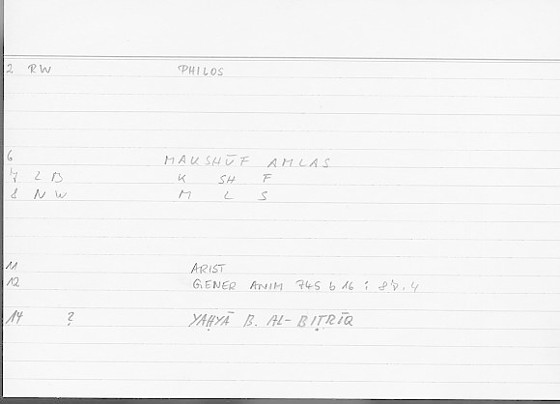 2 RW PHILOS
6 MAKSHŪF AMLAS
7 LB K SH F
8 NW M L S
11 ARIST
12 GENER ANIM 745 b 16 : 87.4
14 ? YAḤYĀ B. AL-BIṬRĪQ